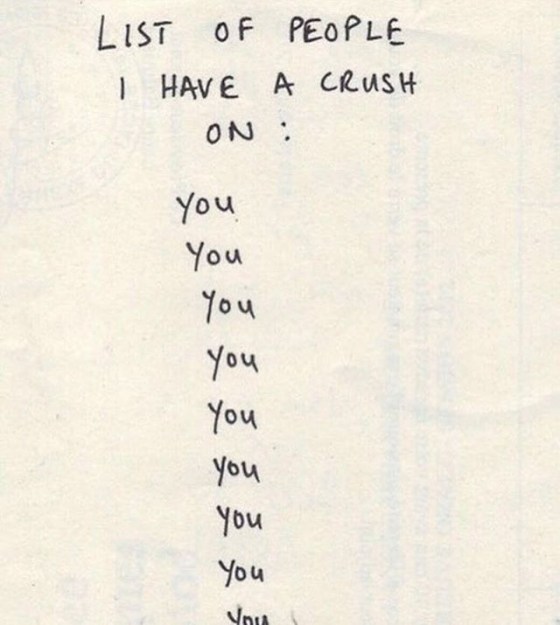 LIST OF PEOPLE
I HAVE A CRUSH
ON :
you
you
you
you
you
you
you
you
you